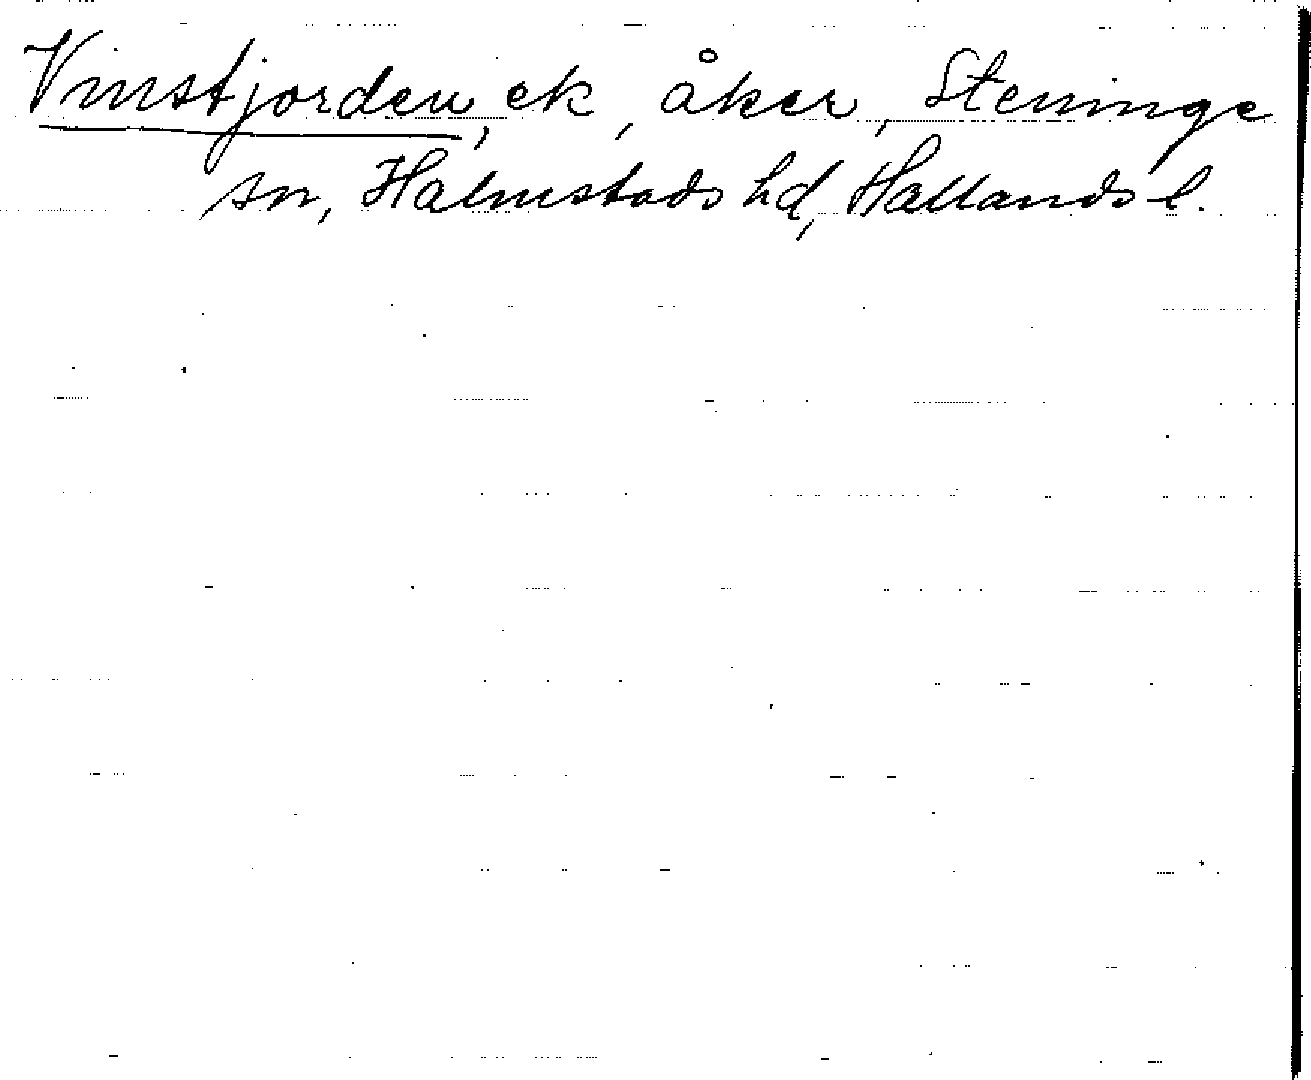 Vinstjorden, ek, åker, Steninge
sn, Halmstads hd, Hallands l.